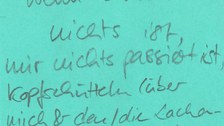 nichts ist,
mir nichts passiert ist,
Kopfschütteln (über
mich & den/die Sachen-